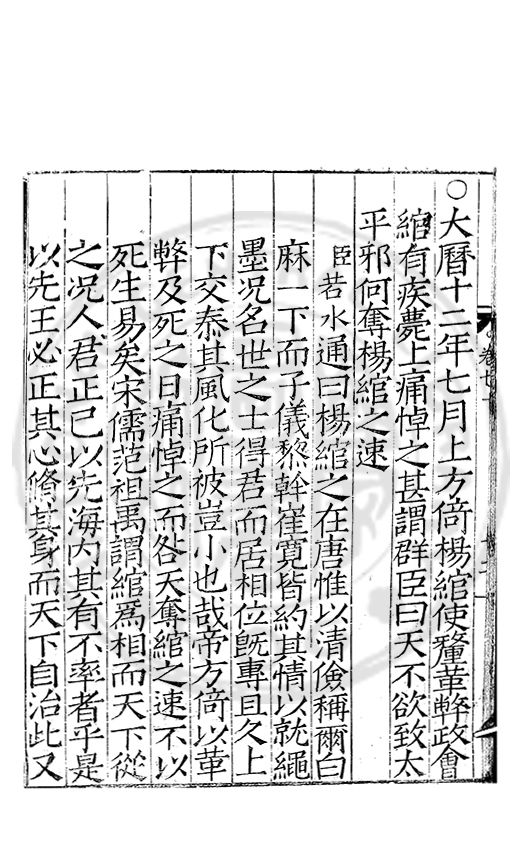 ○大曆十二年七月上方倚楊綰使釐革弊政會
綰有疾薨上痛悼之甚謂群臣曰天不欲致太
平邪何奪楊綰之速
臣若水通曰楊綰之在唐惟以清儉稱爾白
麻一下而子儀黎幹崔寛皆約其情以就繩
墨况名世之士得君而居相位旣專且久上
下交泰其風化所被豈小也哉帝方倚以革
弊及死之日痛悼之而咎天奪綰之速不以
死生易矣宋儒范祖禹謂綰爲相而天下從
之况人君正己以先海内其有不率者乎是
以先王必正其心脩其身而天下自治此又